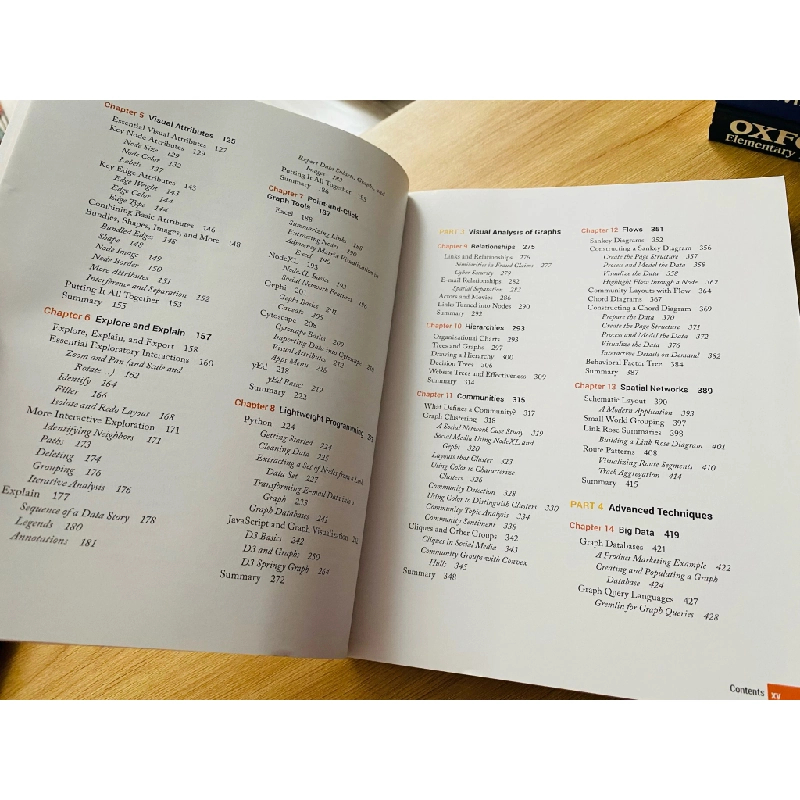 Chapter 5 Visual Attributes 125
Essential Visual Attributes 127
Key Node Attributes 129
Node Size 129
Node Color 132
Labels 137
Key Edge Attributes 143
Edge Weight 143
Edge Color 144
Edge Type 144
Combining Basic Attributes 146
Bundles, Shapes, Images, and More 148
Bundled Edges 148
Shape 149
Node Image 149
Node Border 150
More Attributes 151
Interference and Separation 152
Putting It All Together 153
Summary 155
Chapter 6 Explore and Explain 157
Explore, Explain, and Export 158
Essential Exploratory Interactions 160
Zoom and Pan (and Scale and
Rotate ...) 162
Identify 164
Filter 166
Isolate and Redo Layout 168
More Interactive Exploration 171
Identifying Neighbors 171
Paths 173
Deleting 174
Grouping 176
Iterative Analysis 176
Explain 177
Sequence of a Data Story 178
Legends 180
Annotations 181
Report Data Details, Graphs, and
Images
Putting It All Together
Summary 186
Chapter 7 Point-and-Click
Graph Tools 187
Excel 188
Summarizing Links 188
Extracting Nodes 190
Adjacency Matrix Visualization in
Excel
NodeXL 193
NodeXL Basics 193
Social Network Features
Gephi 201
Gephi Basics 201
Caveats 205
Cytoscape 206
Cytoscape Basics
Importing Data into Cytoscape
Visual Attributes 212
Apps Menu
yEd 218
yEd Basics 219
Summary 222
Chapter 8 Lightweight Programming
Python 224
Getting Started 224
Cleaning Data 225
Extracting a Set of Nodes from a Link
Data Set 227
Transforming E-mail Data into a
Graph
Graph Databases 241
JavaScript and Graph Visualization
D3 Basics 242
D3 and Graphs 250
D3 Springy Graph 264
Summary 272
PART 3 Visual Analysis of Graphs
Chapter 9 Relationships 275
Links and Relationships 276
Similarities in Fraud Claims 277
Cyber Security 279
E-mail Relationships 282
Spatial Separation 287
Actors and Movies 286
Links Turned into Nodes 290
Summary 292
Chapter 10 Hierarchies 293
Organizational Charts 293
Trees and Graphs 297
Drawing a Hierarchy 300
Decision Trees 306
Website Trees and Effectiveness 309
Summary 314
Chapter 11 Communities 315
What Defines a Community? 317
Graph Clustering 318
A Social Network Case Study 319
Social Media Using NodeXL and
Gephi 320
Layouts that Cluster 323
Using Color to Characterize
Clusters 326
Community Detection 328
Using Color to Distinguish Clusters 330
Community Topic Analysis 334
Community Sentiment 336
Cliques and Other Groups 342
Cliques in Social Media 343
Community Groups with Convex
Hulls 345
Summary 348
Chapter 12 Flows 351
Sankey Diagrams 352
Constructing a Sankey Diagram 356
Create the Page Structure 357
Process and Model the Data 357
Visualize the Data 358
Highlight Flow through a Node 362
Community Layouts with Flow 364
Chord Diagrams 367
Constructing a Chord Diagram 369
Prepare the Data 370
Create the Page Structure 371
Process and Model the Data 372
Visualize the Data 376
Interactive Details on Demand 382
Behavioral Factor Tree 384
Summary 387
Chapter 13 Spatial Networks 389
Schematic Layout 390
A Modern Application 393
Small World Grouping 397
Link Rose Summaries 398
Building a Link Rose Diagram 401
Route Patterns 408
Visualizing Route Segments 410
Track Aggregation 414
Summary 415
PART 4 Advanced Techniques
Chapter 14 Big Data 419
Graph Databases 421
A Product Marketing Example 422
Creating and Populating a Graph
Database 424
Graph Query Languages 427
Gremlin for Graph Queries 428
Contents xv
OXFO
Elementary